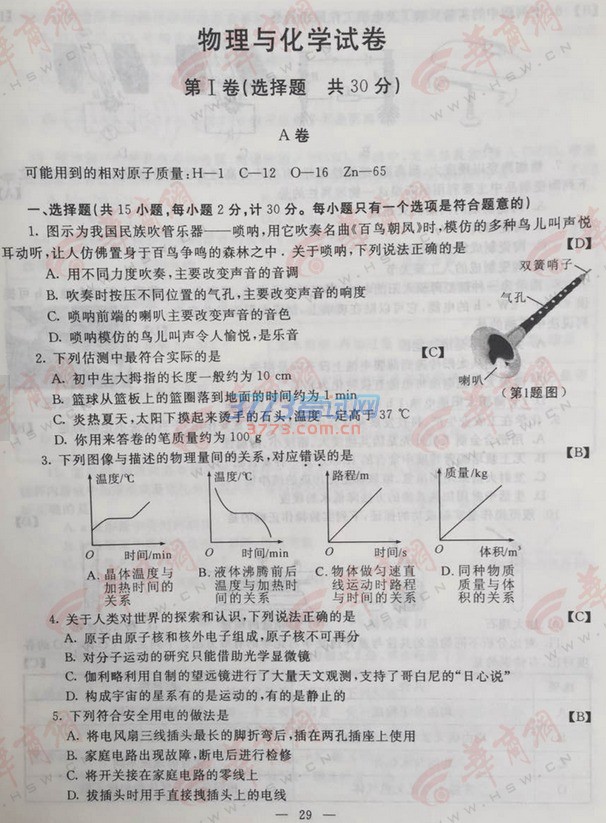 物理与化学试卷
第Ⅰ卷(选择题 共30分)
A卷
可能用到的相对原子质量:H—1 C—12 O—16 Zn—65
一、选择题(共15小题,每小题2分,计30分。每小题只有一个选项是符合题意的)
1. 图示为我国民族吹管乐器——唢呐,用它吹奏名曲《百鸟朝凤》时,模仿的多种鸟儿叫声悦
耳动听,让人仿佛置身于百鸟争鸣的森林之中. 关于唢呐,下列说法正确的是 【D】
A. 用不同力度吹奏,主要改变声音的音调
B. 吹奏时按压不同位置的气孔,主要改变声音的响度
C. 唢呐前端的喇叭主要改变声音的音色
D. 唢呐模仿的鸟儿叫声令人愉悦,是乐音
双簧哨子
气孔
喇叭
(第1题图)
2. 下列估测中最符合实际的是 【C】
A. 初中生大拇指的长度一般约为10 cm
B. 篮球从篮板上的篮圈落到地面的时间约为1 min
C. 炎热夏天,太阳下摸起来烫手的石头,温度一定高于37 ℃
D. 你用来答卷的笔质量约为100 g
3773考试网
3773.com.cn
3. 下列图像与描述的物理量间的关系,对应错误的是 【B】
温度/℃ 温度/℃ 路程/m 质量/kg
O 时间/min O 时间/min O 时间/s O 体积/m³
A. 晶体温度与 B. 液体沸腾前后 C. 物体做匀速直 D. 同种物质
加热时间的 温度与加热时 线运动时路程 质量与体
关系 间的关系 与时间的关系 积的关系
4. 关于人类对世界的探索和认识,下列说法正确的是 【C】
A. 原子由原子核和核外电子组成,原子核不可再分
B. 对分子运动的研究只能借助光学显微镜
C. 伽利略利用自制的望远镜进行了大量天文观测,支持了哥白尼的“日心说”
D. 构成宇宙的星系有的是运动的,有的是静止的
5. 下列符合安全用电的做法是 【B】
A. 将电风扇三线插头最长的脚折弯后,插在两孔插座上使用
B. 家庭电路出现故障,断电后进行检修
C. 将开关接在家庭电路的零线上
D. 拔插头时用手直接拽插头上的电线
— 29 —
华商网
WWW.HSW.CN